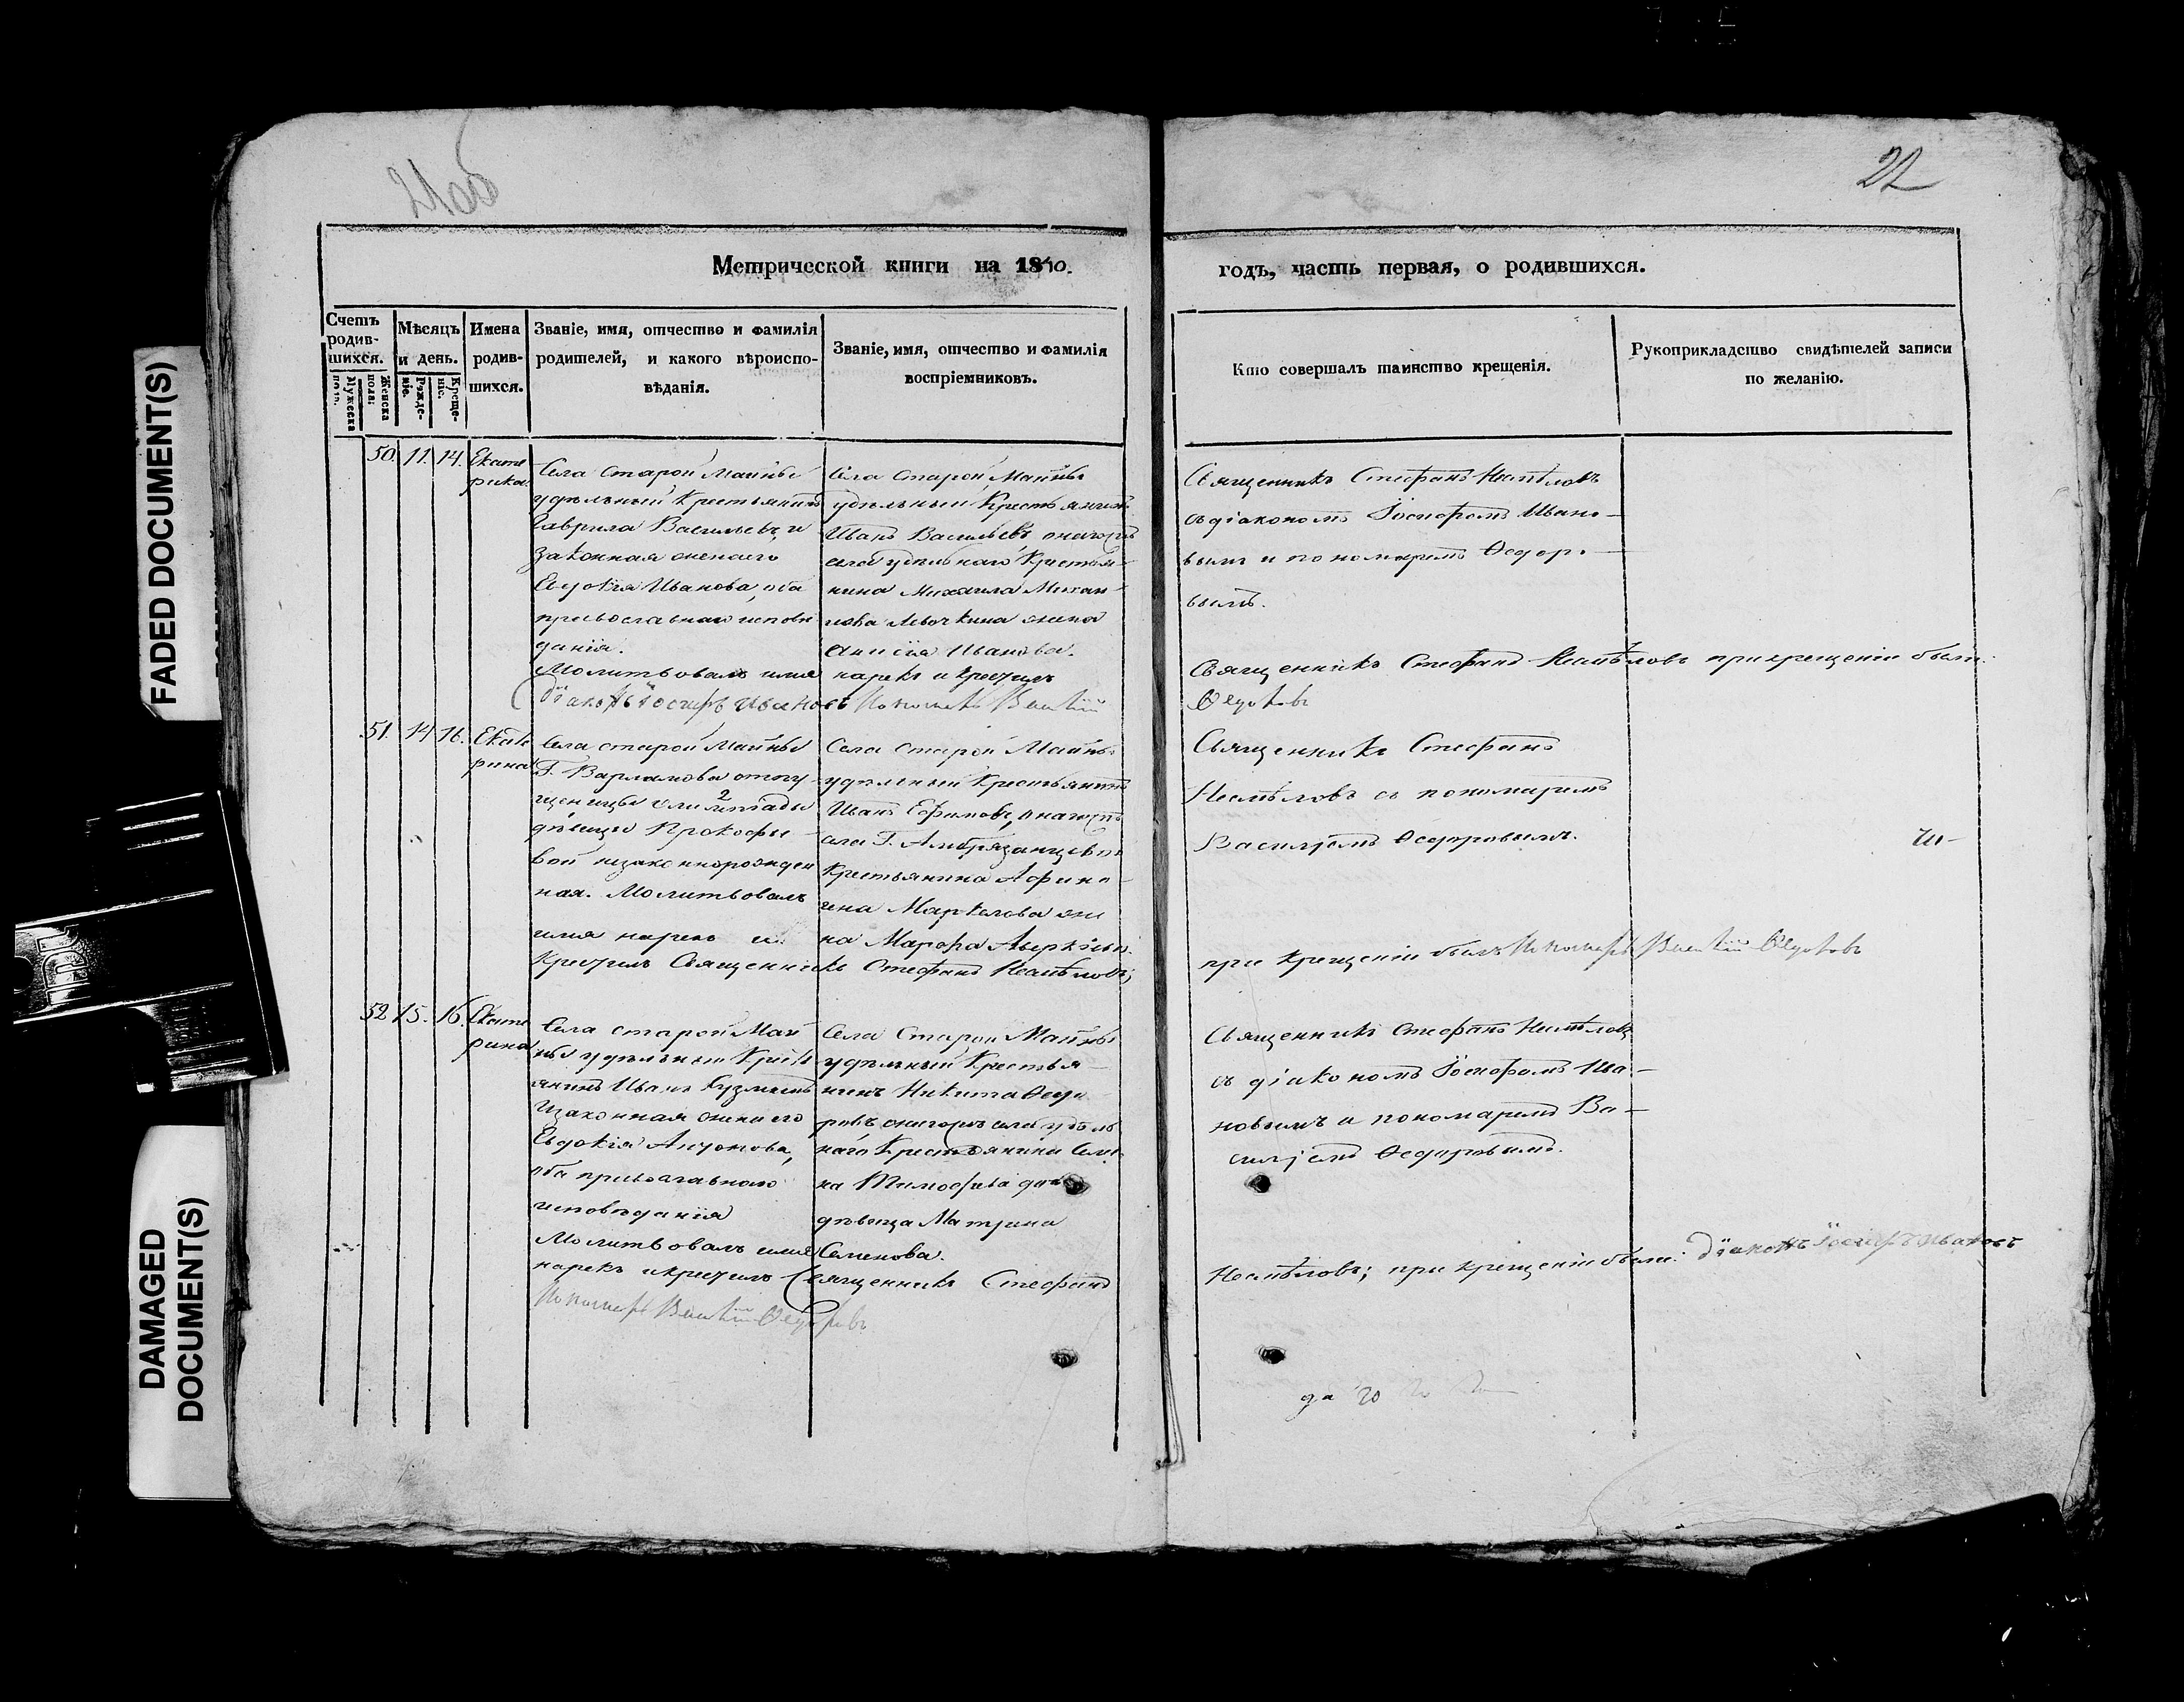 21об
22
Метрической книги на 1840.
годъ, часть первая, о родившихся.
Счетъ родив-шихся.
Мужеска пола.
Женска пола.
Мѣсяцъ и день.
Рожде-ніе.
Креще-ніе.
Имена родив-шихся.
Званіе, имя, отчество и фамилія
родителей, и какого вѣроиспо-
вѣданія.
Званіе, имя, отчество и фамилія
воспріемниковъ.
Кто совершалъ таинство крещенія.
Рукоприкладство свидѣтелей записи
по желанію.
50. 11. 14. Екате
рина
Села Старой Майны
удѣльный Крестьянинъ
Гаврила Васильевъ и
законная жена его
Евдокія Иванова, оба
православнаго исповѣ
данія.
Молитвовалъ имя нарекъ и крестилъ
Діаконъ Іосифъ Ивановъ Пономарь Василій
Села Старой Майны
удѣльный Крестьянинъ
Иванъ Васильевъ, онагожъ
села удѣльнаго Крестья-
нина Михаила Михай-
лова жена
Анисія Иванова.
Священникъ Стефанъ Несмѣловъ
съ діакономъ Іосифомъ Ивано-
вымъ и пономаремъ Ѳедоро-
вымъ.
Священникъ Стефанъ Несмѣловъ при крещеніи были:
Ѳедоровъ
51. 14 16. Екате
рина
Села Старой Майны
Г. Варламова отпу-
щеницы Олимпіады
дѣвицы Прокофье-
вой незаконнорожден
ная. Молитвовалъ
имя нарекъ и
Крестилъ Священникъ Стефанъ Несмѣловъ;
Села Старой Майны
удѣльный Крестьянинъ
Иванъ Ефимовъ, онагожъ
села Г.
Крестьянина Афино-
гена Маркелова же
на Марфа
Священникъ Стефанъ
Несмѣловъ съ пономаремъ
Василіемъ Ѳедоровымъ.
при крещеніи былъ Пономарь Василій Ѳедоровъ
52 15. 16. Екате
рина
Села Старой Май
ны удѣльный Кресть
янинъ Иванъ Кузминъ
и законная жена его
Евдокія Антонова,
оба православнаго
исповѣданія
Молитвовалъ имя
нарекъ и крестилъ Священникъ Стефанъ
Пономарь Василій Ѳедоровъ
Села Старой Майны
удѣльный Крестья-
нинъ Никита Ѳедо
ровъ онагожъ села удѣль
наго Крестьянина Семе
на Тимофѣева дочь
дѣвица Матрина
Семенова.
Священникъ Стефанъ Несмѣловъ
съ діакономъ Іосифомъ Ива-
новымъ и пономаремъ Ва-
силіемъ Ѳедоровымъ.
Несмѣловъ; при крещеніи были: Діаконъ Іосифъ Ивановъ
FADED DOCUMENT(S)
DAMAGED
DOCUMENT(S)